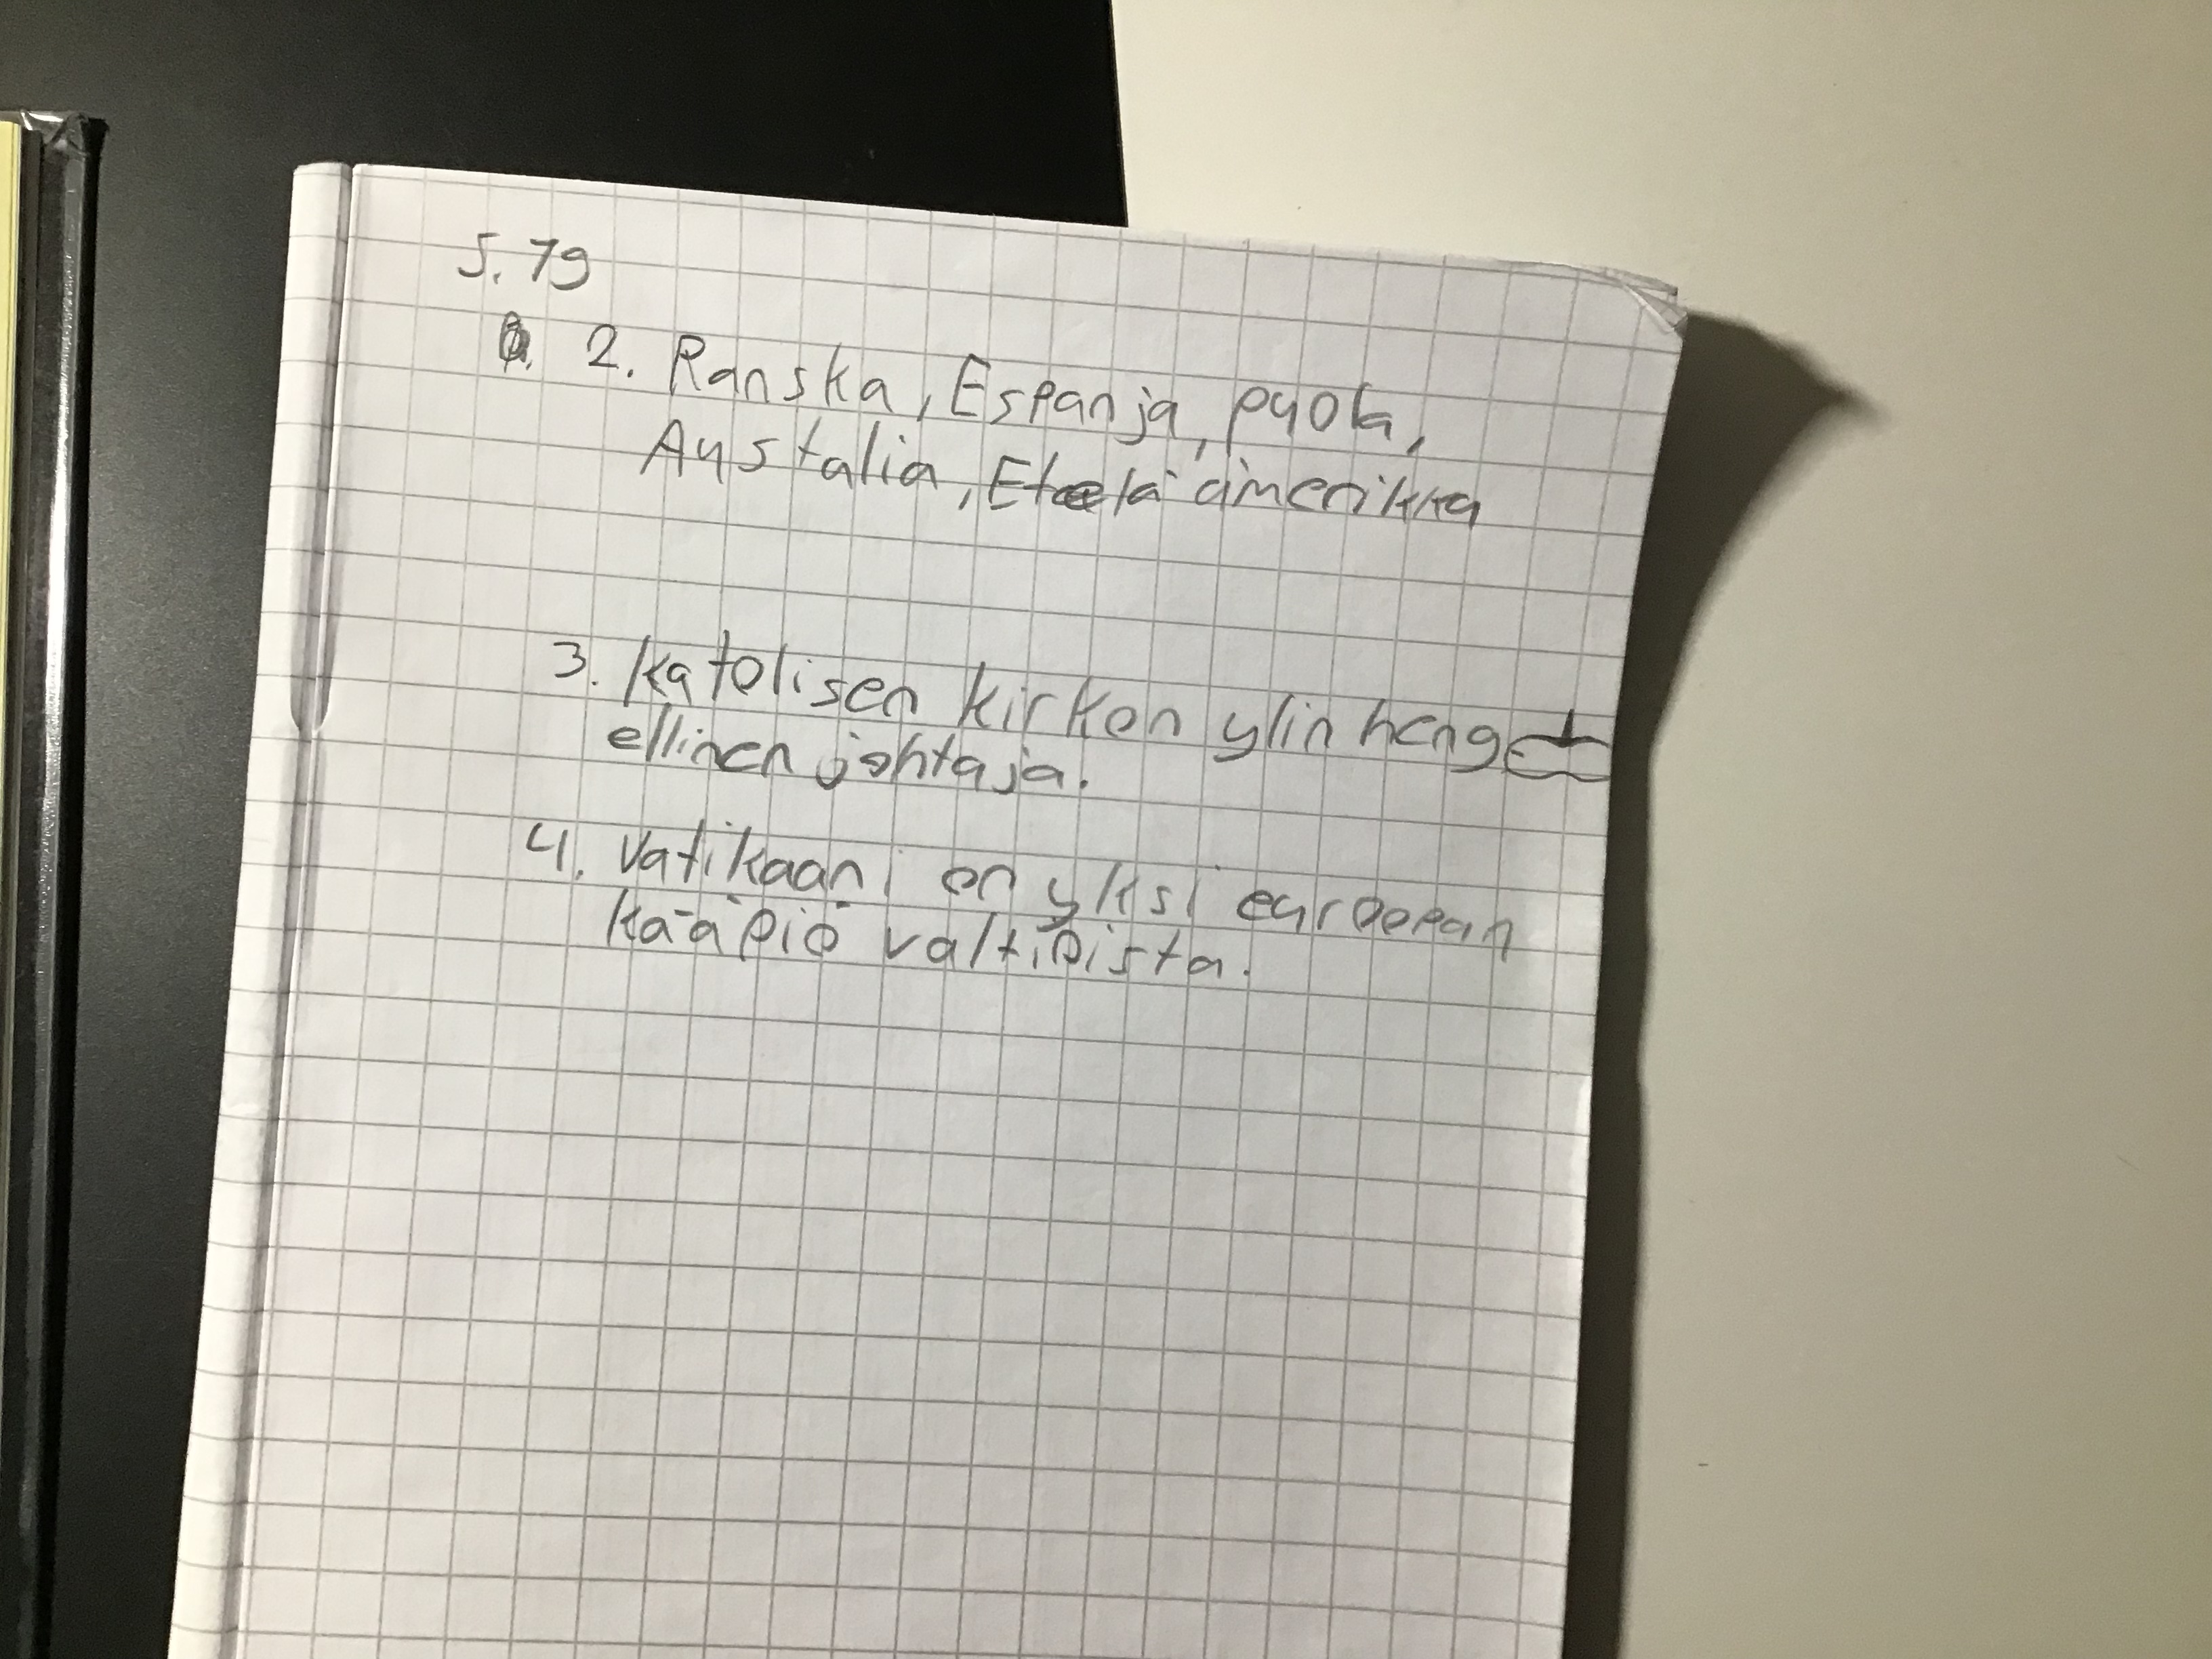 s. 79
2. Ranska, Espanja, puola,
Austalia, Etelä amerikka
3. katolisen kirkon ylin heng
ellinen johtaja.
4. Vatikaani on yksi euroopan
kääpiö valtioista.